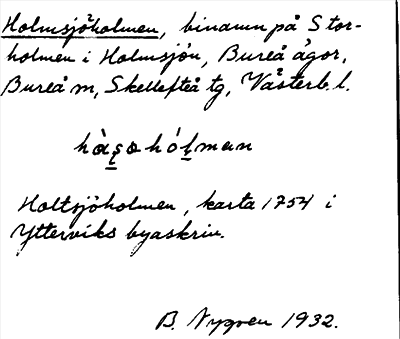 Holmsjöholmen, binamn på Stor-
holmen i Holmsjön, Bureå ägor,
Bureå m, Skellefteå tg, Västerb. l.
Holtsjöholmen, karta 1754 i
Ytterviks byaskriv.
B. Nygren 1932.